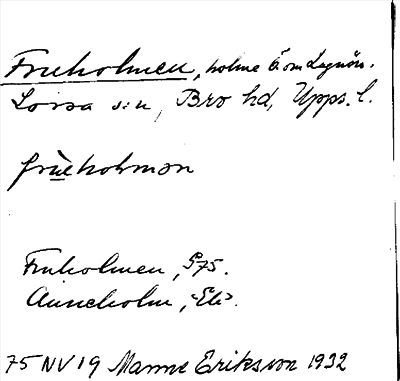 Fruholmen, holme Ö om Lagnön.
Lossa s:n, Bro hd, Upps. l.
frùehòlmən
Fruholmen, S75.
Anneholm, "Ek".
75 NV 19 Manne Eriksson 1932